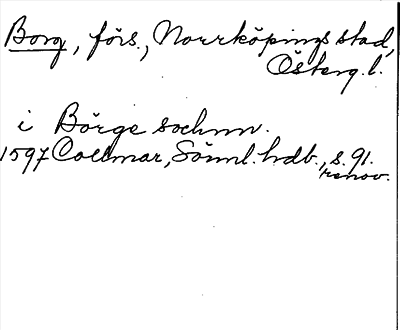 Borg, förs., Norrköpings stad,
Österg. l.
i Börge sochnn.
1597 Collmar, Sönnl. hdb., s. 91.
renov.